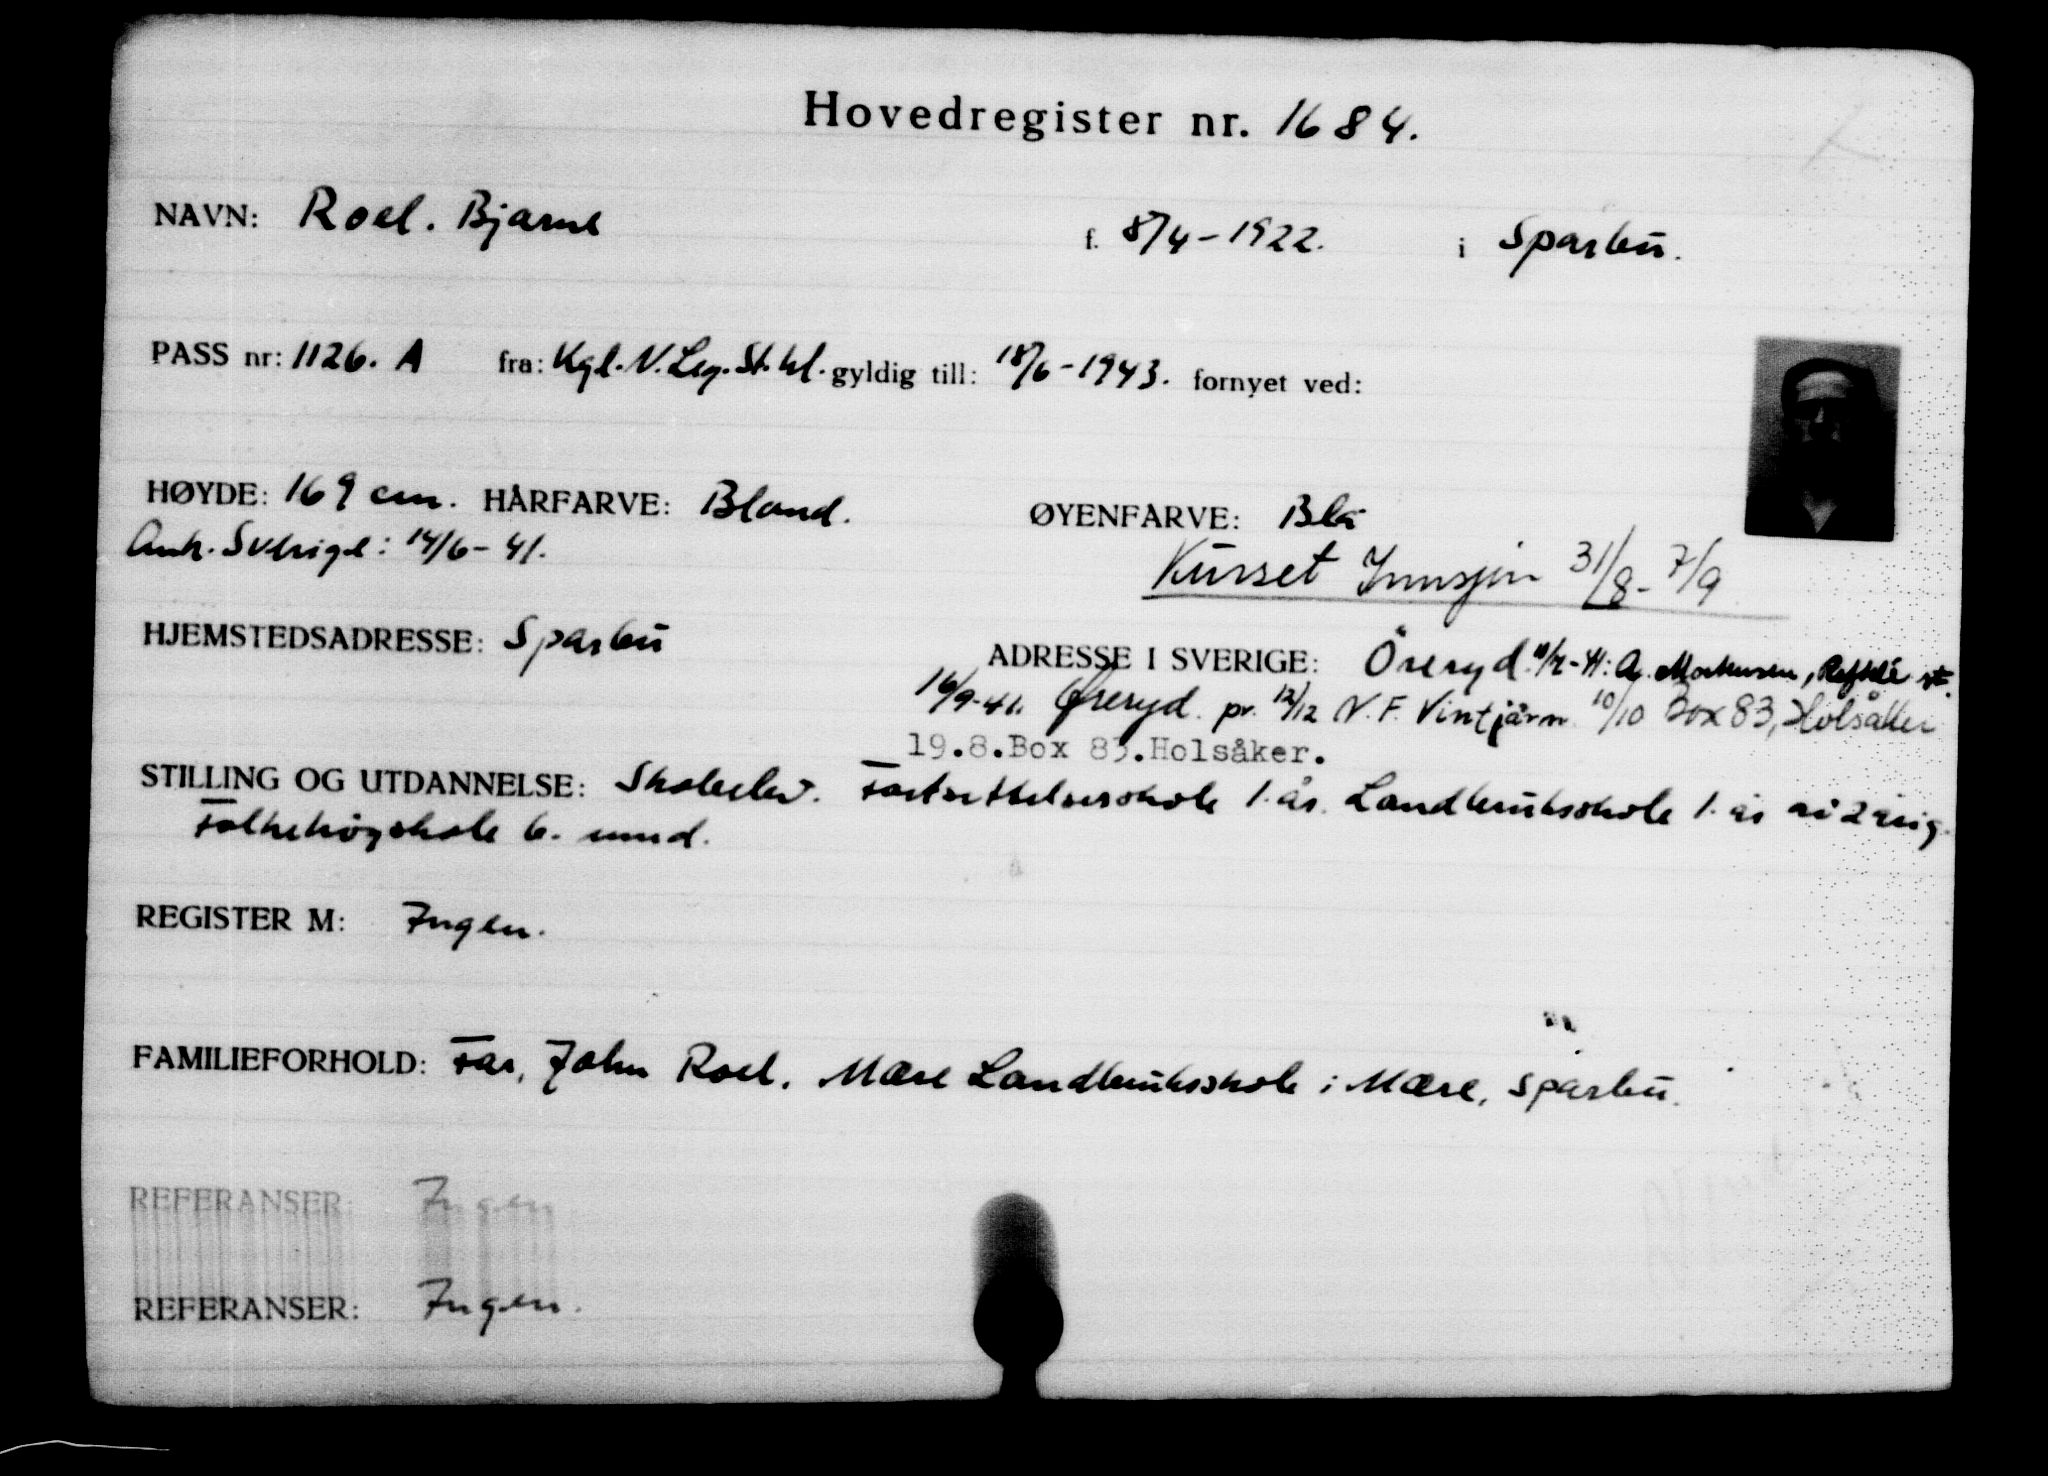 Hovedregister nr. 1684.
NAVN: Roel. Bjarne f. 8/4-1922. i Sparbu.
PASS nr: 1126. A fra: Kgl. N. Leg. St.hl. gyldig till: 18/6-1943. fornyet ved:
HØYDE: 169 cm. HÅRFARVE: Blond. ØYENFARVE: Blå
Ank. Sverige: 14/6-41. Kurset Innsjön 31/8-7/9
HJEMSTEDSADRESSE: Sparbu ADRESSE I SVERIGE: Öreryd. 11/7-41: st.
16/9-41. Øreryd. pr. 12/12 N.F. Vintjärn 10/10 Box 83, Holsåker
19.8.Box 83.Holsåker.
STILLING OG UTDANNELSE: Skoleelev. Fortsettelsesskole 1. år. Landbruksskole 1. år av 2 årig.
Folkehøgskole 6. mnd.
REGISTER M: Ingen.
FAMILIEFORHOLD: Far, John Roel. Mære Landbruksskole i Mære, Sparbu.
REFERANSER: Ingen
REFERANSER: Ingen.